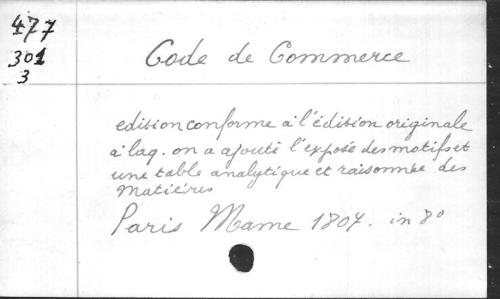 477
301
3
Code de Commerce
edition conforme à l'édition originale
à laq. on a ajouté l'exposé des motifs et
une table analytique et raisonnée des
Matières
Paris Mame 1807. in 8º